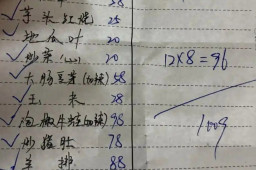 28
芋头红烧 25
地瓜叶 20
炒菜 20
大肠豆芽(加辣) 58
玉米 28
泡椒牛蛙(加辣) 98
78
羊排 88
12×8=96
1009